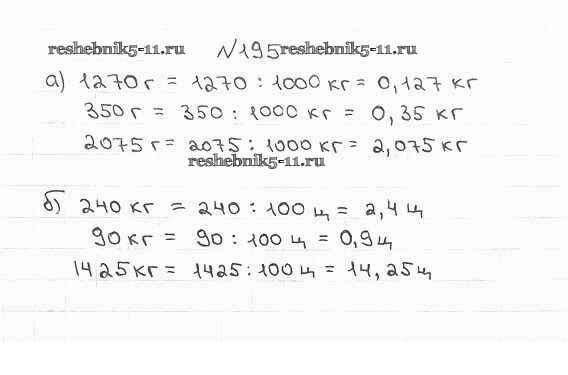 reshebnik5-11.ru №195 reshebnik5-11.ru
а) 1270 г = 1270 : 1000 кг = 0,127 кг
350 г = 350 : 1000 кг = 0,35 кг
2075 г = 2075 : 1000 кг = 2,075 кг
reshebnik5-11.ru
б) 240 кг = 240 : 100 ц = 2,4 ц
90 кг = 90 : 100 ц = 0,9 ц
1425 кг = 1425 : 100 ц = 14,25 ц